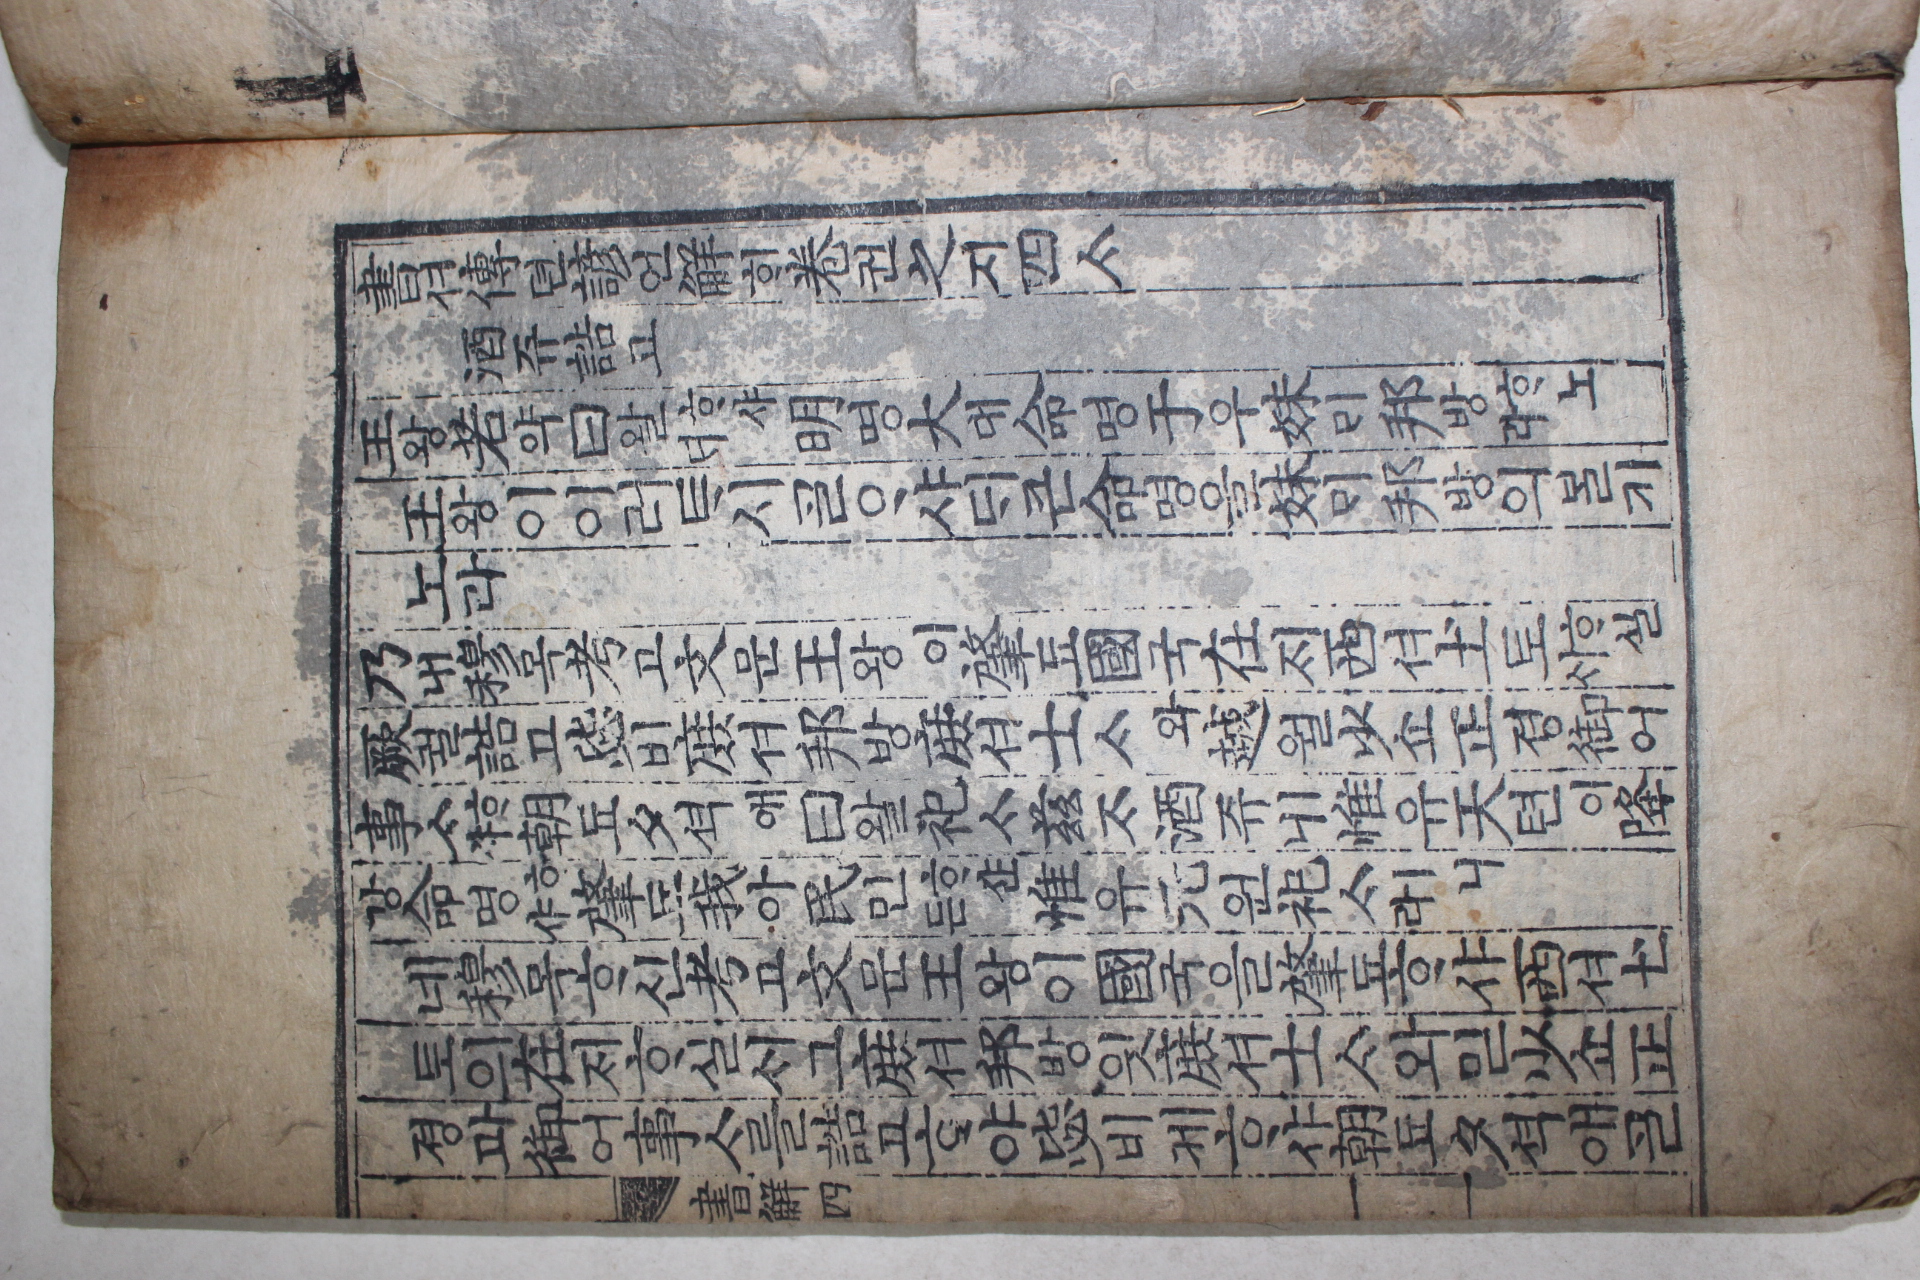 書셔傳뎐諺언解ᄒᆡ卷권之지四ᄉᆞ
酒쥬誥고
王왕若약曰왈ᄒᆞ샤ᄃᆡ明명大대命명于우妹ᄆᆡ邦방ᄒᆞ노라
王왕이이러ᄐᆞ시ᄀᆞᆯᄋᆞ샤ᄃᆡ큰命명을妹ᄆᆡ邦방의ᄇᆞᆯ기
노라
乃내穆목考고文문王왕이肇됴國국在ᄌᆡ西셔土토ᄒᆞ실ᄉᆡ
厥궐誥고毖비庶셔邦방庶셔士ᄉᆞ와越월少쇼正졍御어
事ᄉᆞᄒᆞ샤朝됴夕셕애曰왈祀ᄉᆞ玆ᄌᆞ酒쥬ㅣ니惟유天텬이降
강命명ᄒᆞ샤肇됴我아民민ᄒᆞ샨ᄃᆞᆫ惟유元원祀ᄉᆞㅣ니라
녜穆목ᄒᆞ신考고文문王왕이國국을肇됴ᄒᆞ샤西셔土
토의在ᄌᆡᄒᆞ실ᄉᆡ그庶셔邦방잇庶셔士ᄉᆞ와믿少쇼正
졍과御어事ᄉᆞ를誥고ᄒᆞ야毖비케ᄒᆞ샤朝됴夕셕애ᄀᆞᆯ
書解四
一